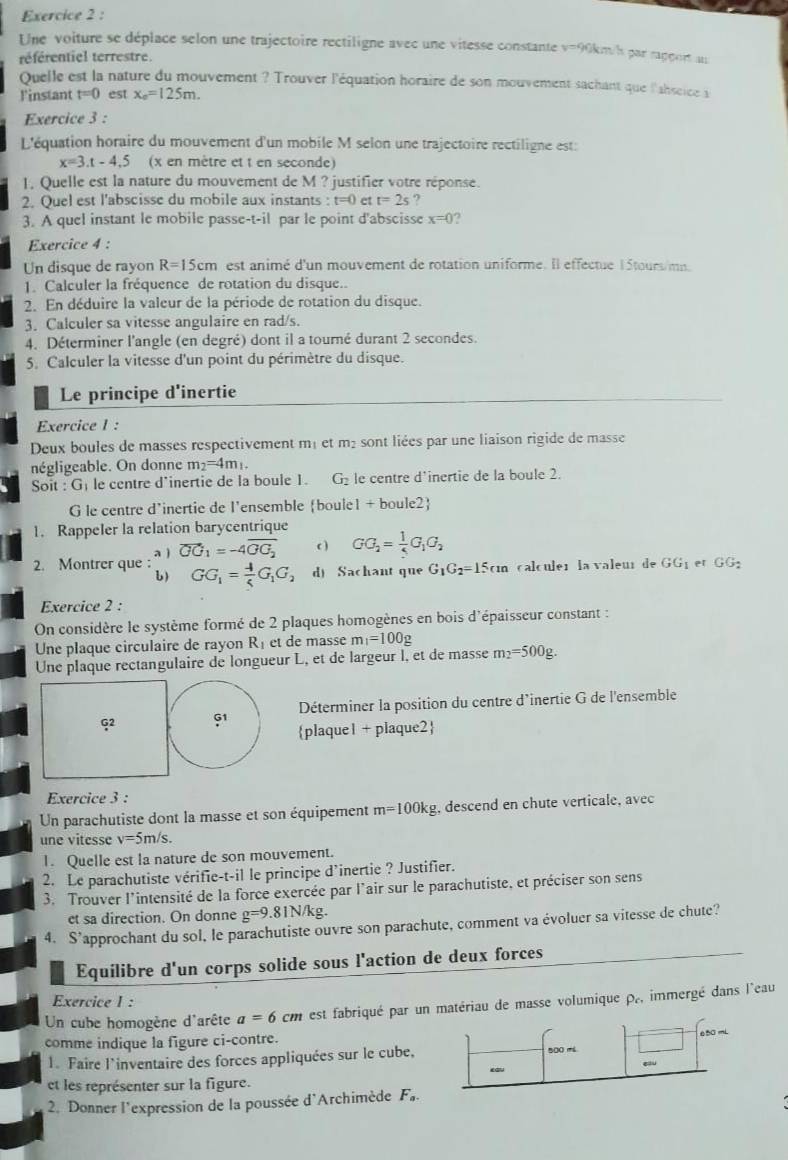 Exercice 2 :
Une voiture se déplace selon une trajectoire rectiligne avec une vitesse constante v=90km/h par rapport au
référentiel terrestre.
Quelle est la nature du mouvement ? Trouver l'équation horaire de son mouvement sachant que l'abscice à
l'instant t=0 est x₀=125m.
Exercice 3 :
L'équation horaire du mouvement d'un mobile M selon une trajectoire rectiligne est:
x=3.t - 4,5 (x en mètre et t en seconde)
1. Quelle est la nature du mouvement de M ? justifier votre réponse.
2. Quel est l'abscisse du mobile aux instants : t=0 et t= 2s ?
3. A quel instant le mobile passe-t-il par le point d'abscisse x=0?
Exercice 4 :
Un disque de rayon R=15cm est animé d'un mouvement de rotation uniforme. Il effectue 15tours/mn.
1. Calculer la fréquence de rotation du disque..
2. En déduire la valeur de la période de rotation du disque.
3. Calculer sa vitesse angulaire en rad/s.
4. Déterminer l'angle (en degré) dont il a tourné durant 2 secondes.
5. Calculer la vitesse d'un point du périmètre du disque.
Le principe d'inertie
Exercice 1 :
Deux boules de masses respectivement m₁ et m₂ sont liées par une liaison rigide de masse
négligeable. On donne m₂=4m₁.
Soit : G₁ le centre d'inertie de la boule 1. G₂ le centre d'inertie de la boule 2.
G le centre d'inertie de l'ensemble {boule1 + boule2}
1. Rappeler la relation barycentrique
2. Montrer que : a ) $\overline{GG_1} = -4\overline{GG_2}$ c ) $GG_2 = \frac{1}{5}G_1G_2$
b) $GG_1 = \frac{4}{5}G_1G_2$ d) Sachant que G₁G₂=15cm calculer la valeur de GG₁ et GG₂
Exercice 2 :
On considère le système formé de 2 plaques homogènes en bois d'épaisseur constant :
Une plaque circulaire de rayon R₁ et de masse m₁=100g
Une plaque rectangulaire de longueur L, et de largeur l, et de masse m₂=500g.
G2 G1
Déterminer la position du centre d'inertie G de l'ensemble
{plaque1 + plaque2}
Exercice 3 :
Un parachutiste dont la masse et son équipement m=100kg, descend en chute verticale, avec
une vitesse v=5m/s.
1. Quelle est la nature de son mouvement.
2. Le parachutiste vérifie-t-il le principe d'inertie ? Justifier.
3. Trouver l'intensité de la force exercée par l'air sur le parachutiste, et préciser son sens
et sa direction. On donne g=9.81N/kg.
4. S'approchant du sol, le parachutiste ouvre son parachute, comment va évoluer sa vitesse de chute?
Equilibre d'un corps solide sous l'action de deux forces
Exercice 1 :
Un cube homogène d'arête a = 6 cm est fabriqué par un matériau de masse volumique ρc, immergé dans l'eau
comme indique la figure ci-contre.
1. Faire l'inventaire des forces appliquées sur le cube,
et les représenter sur la figure.
2. Donner l'expression de la poussée d'Archimède Fₐ.
500 mL
eau
650 mL
eau